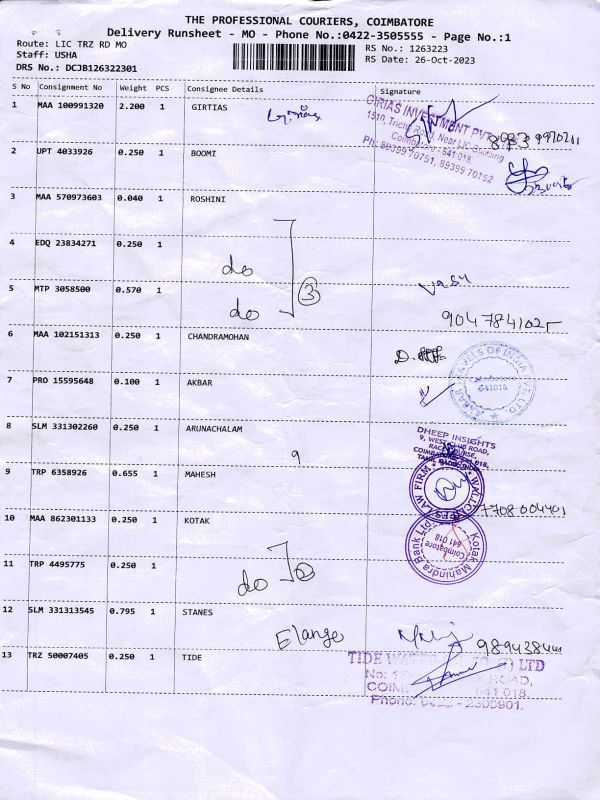 THE PROFESSIONAL COURIERS, COIMBATORE
Delivery Runsheet - MO - Phone No.:0422-3505555 - Page No.:1
Route: LIC TRZ RD MO
Staff: USHA
DRS No.: DCJB126322301
RS No.: 1263223
RS Date: 26-Oct-2023
S No Consignment No Weight PCS Consignee Details Signature
1 MAA 100991320 2.200 1 GIRTIAS
GIRIAS INVESTMENT PVT
1510, Trichy Road, Near LIC Building
Coimbatore - 641 018.
Ph: 89399 70751, 89399 70752
2 UPT 4033926 0.250 1 BOOMI
3 MAA 570973603 0.040 1 ROSHINI
4 EDQ 23834271 0.250 1
do
3
5 MTP 3058500 0.570 1
do
Vasu
9047841025
6 MAA 102151313 0.250 1 CHANDRAMOHAN
7 PRO 15595648 0.100 1 AKBAR
AKBAR TRAVELS OF INDIA PVT. LTD.
Coimbatore
641018
8 SLM 331302260 0.250 1 ARUNACHALAM
9
DHEEP INSIGHTS
9, WEST CLUB ROAD,
RACE COURSE,
9 TRP 6358926 0.655 1 MAHESH
LAW FIRM
7708004401
10 MAA 862301133 0.250 1 KOTAK
Kotak Mahindra Bank Ltd.
Coimbatore
641 018
11 TRP 4495775 0.250 1
do
12 SLM 331313545 0.795 1 STANES
Elango
13 TRZ 50007405 0.250 1 TIDE
TIDE LTD
ROAD,
641 018.
Phone: 0422 - 2300901.